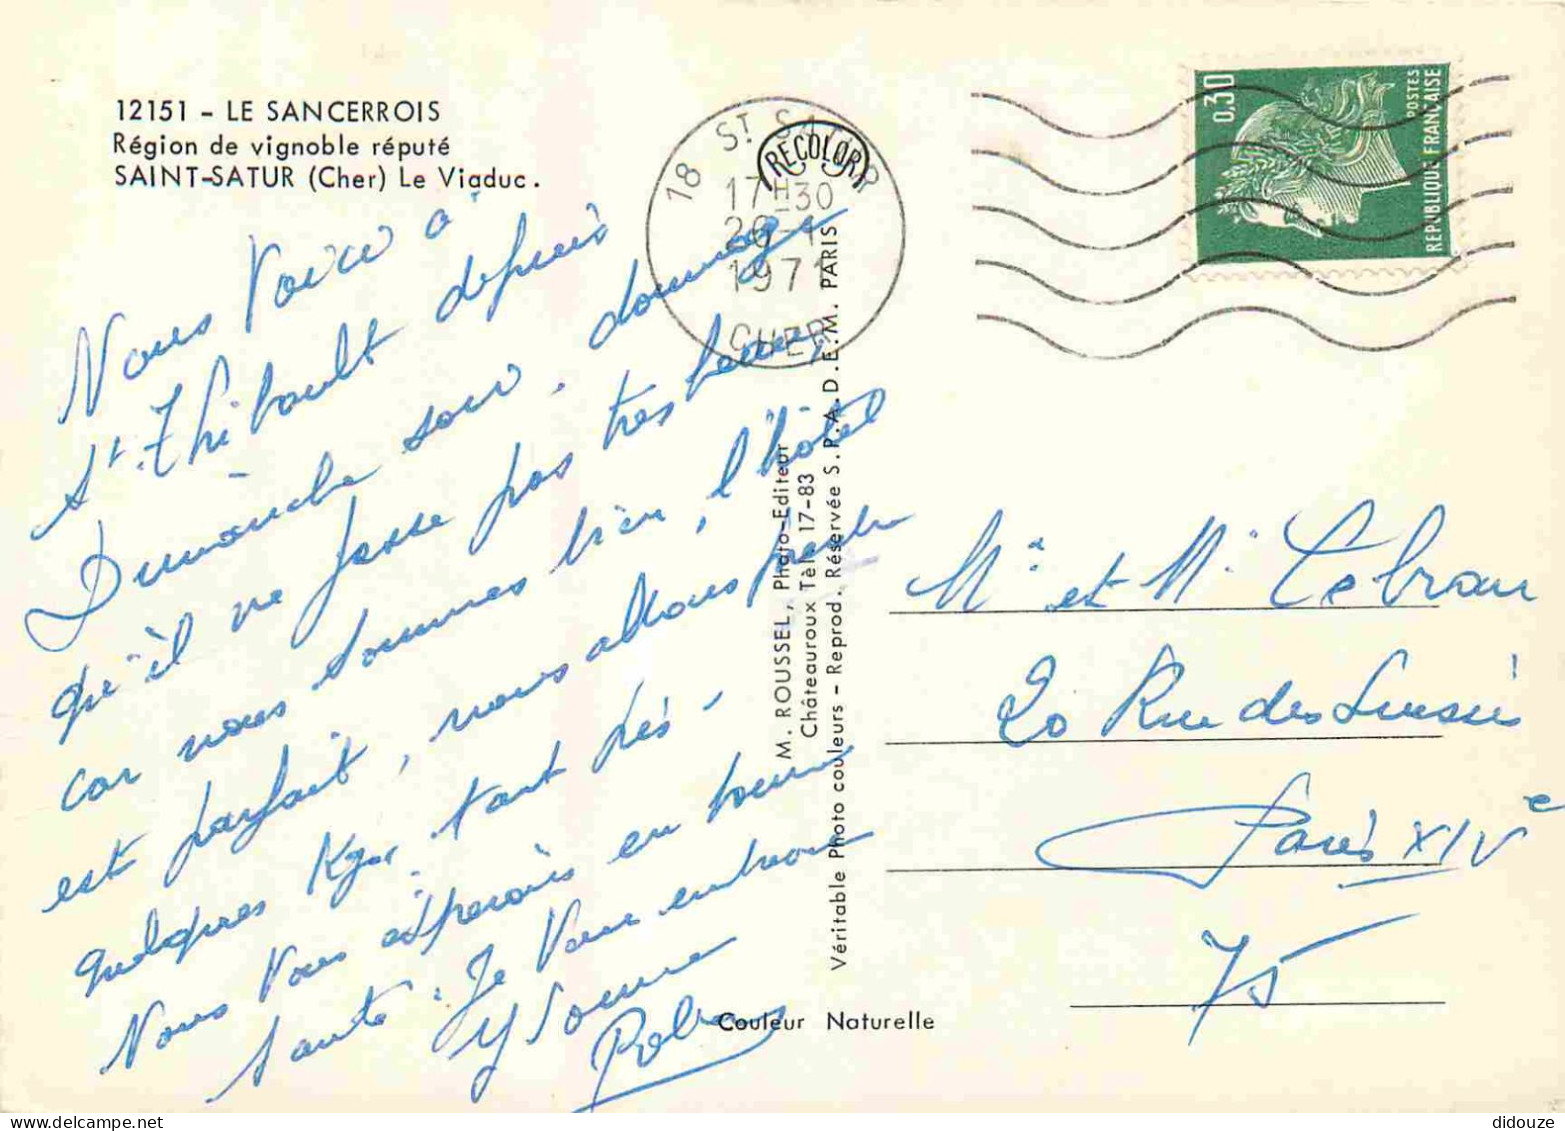 12151 - LE SANCERROIS
Région de vignoble réputé
SAINT-SATUR (Cher) Le Viaduc.
Nous voici à
St Thibault depuis
Dimanche soir, dommage
qu'il ne fasse pas très beau,
car nous sommes bien, l'hôtel
est parfait, nous allons prendre
quelques Kgs, tant pis -
Nous vous espérons en bonne
santé. Je vous embrasse
Ydonne
18 ST SATUR
17H30
26-1
1971
CHER
RECOLOR
M. ROUSSEL, Photo-Editeur
Châteauroux Tél. 17-83
Véritable Photo couleurs - Reprod. Réservée S.P.A.D.E.M. PARIS
Couleur Naturelle
0,30
POSTES
REPUBLIQUE FRANÇAISE
Me et M. Lebrau
20 Rue des
Paris XIVe
75
didouze